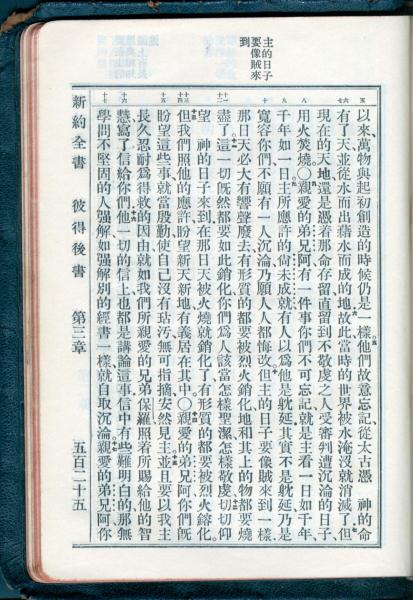 主的日子
要像賊來
到
五
六七
八
九
十
十一十二
十三十四
十五
十六
十七
以來、萬物與起初創造的時候仍是一樣他們故意忘記從太古憑　神的命
有了天並從水而出藉水而成的地故此當時的世界被水淹沒就消滅了但
現在的天地還是憑着那命存留直留到不敬虔之人受審判遭沉淪的日子、
用火焚燒〇親愛的弟兄阿有一件事你們不可忘記就是主看一日如千年、
千年如一日主所應許的尙未成就有人以爲他是躭延其實不是躭延乃是
寬容你們不願有一人沉淪乃願人人都悔改但主的日子要像賊來到一樣
那日天必大有響聲廢去有形質的都要被烈火銷化地和其上的物都要燒
盡了這一切旣然都要如此銷化你們爲人該當怎樣聖潔怎樣敬虔切切仰
望　神的日子來到在那日天被火燒就銷化了有形質的都要被烈火鎔化
但我們照他的應許盼望新天新地有義居在其中〇親愛的弟兄阿你們旣
盼望這些事就當殷勤使自己沒有玷汚無可指摘安然見主並且要以我主
長久忍耐爲得救的因由就如我們所親愛的兄弟保羅照着所賜給他的智
慧寫了信給你們他一切的信上也都是講論這事信中有些難明白的那無
學問不堅固的人强解如强解別的經書一樣就自取沉淪親愛的弟兄阿你
新約全書　彼得後書　第三章　五百二十五